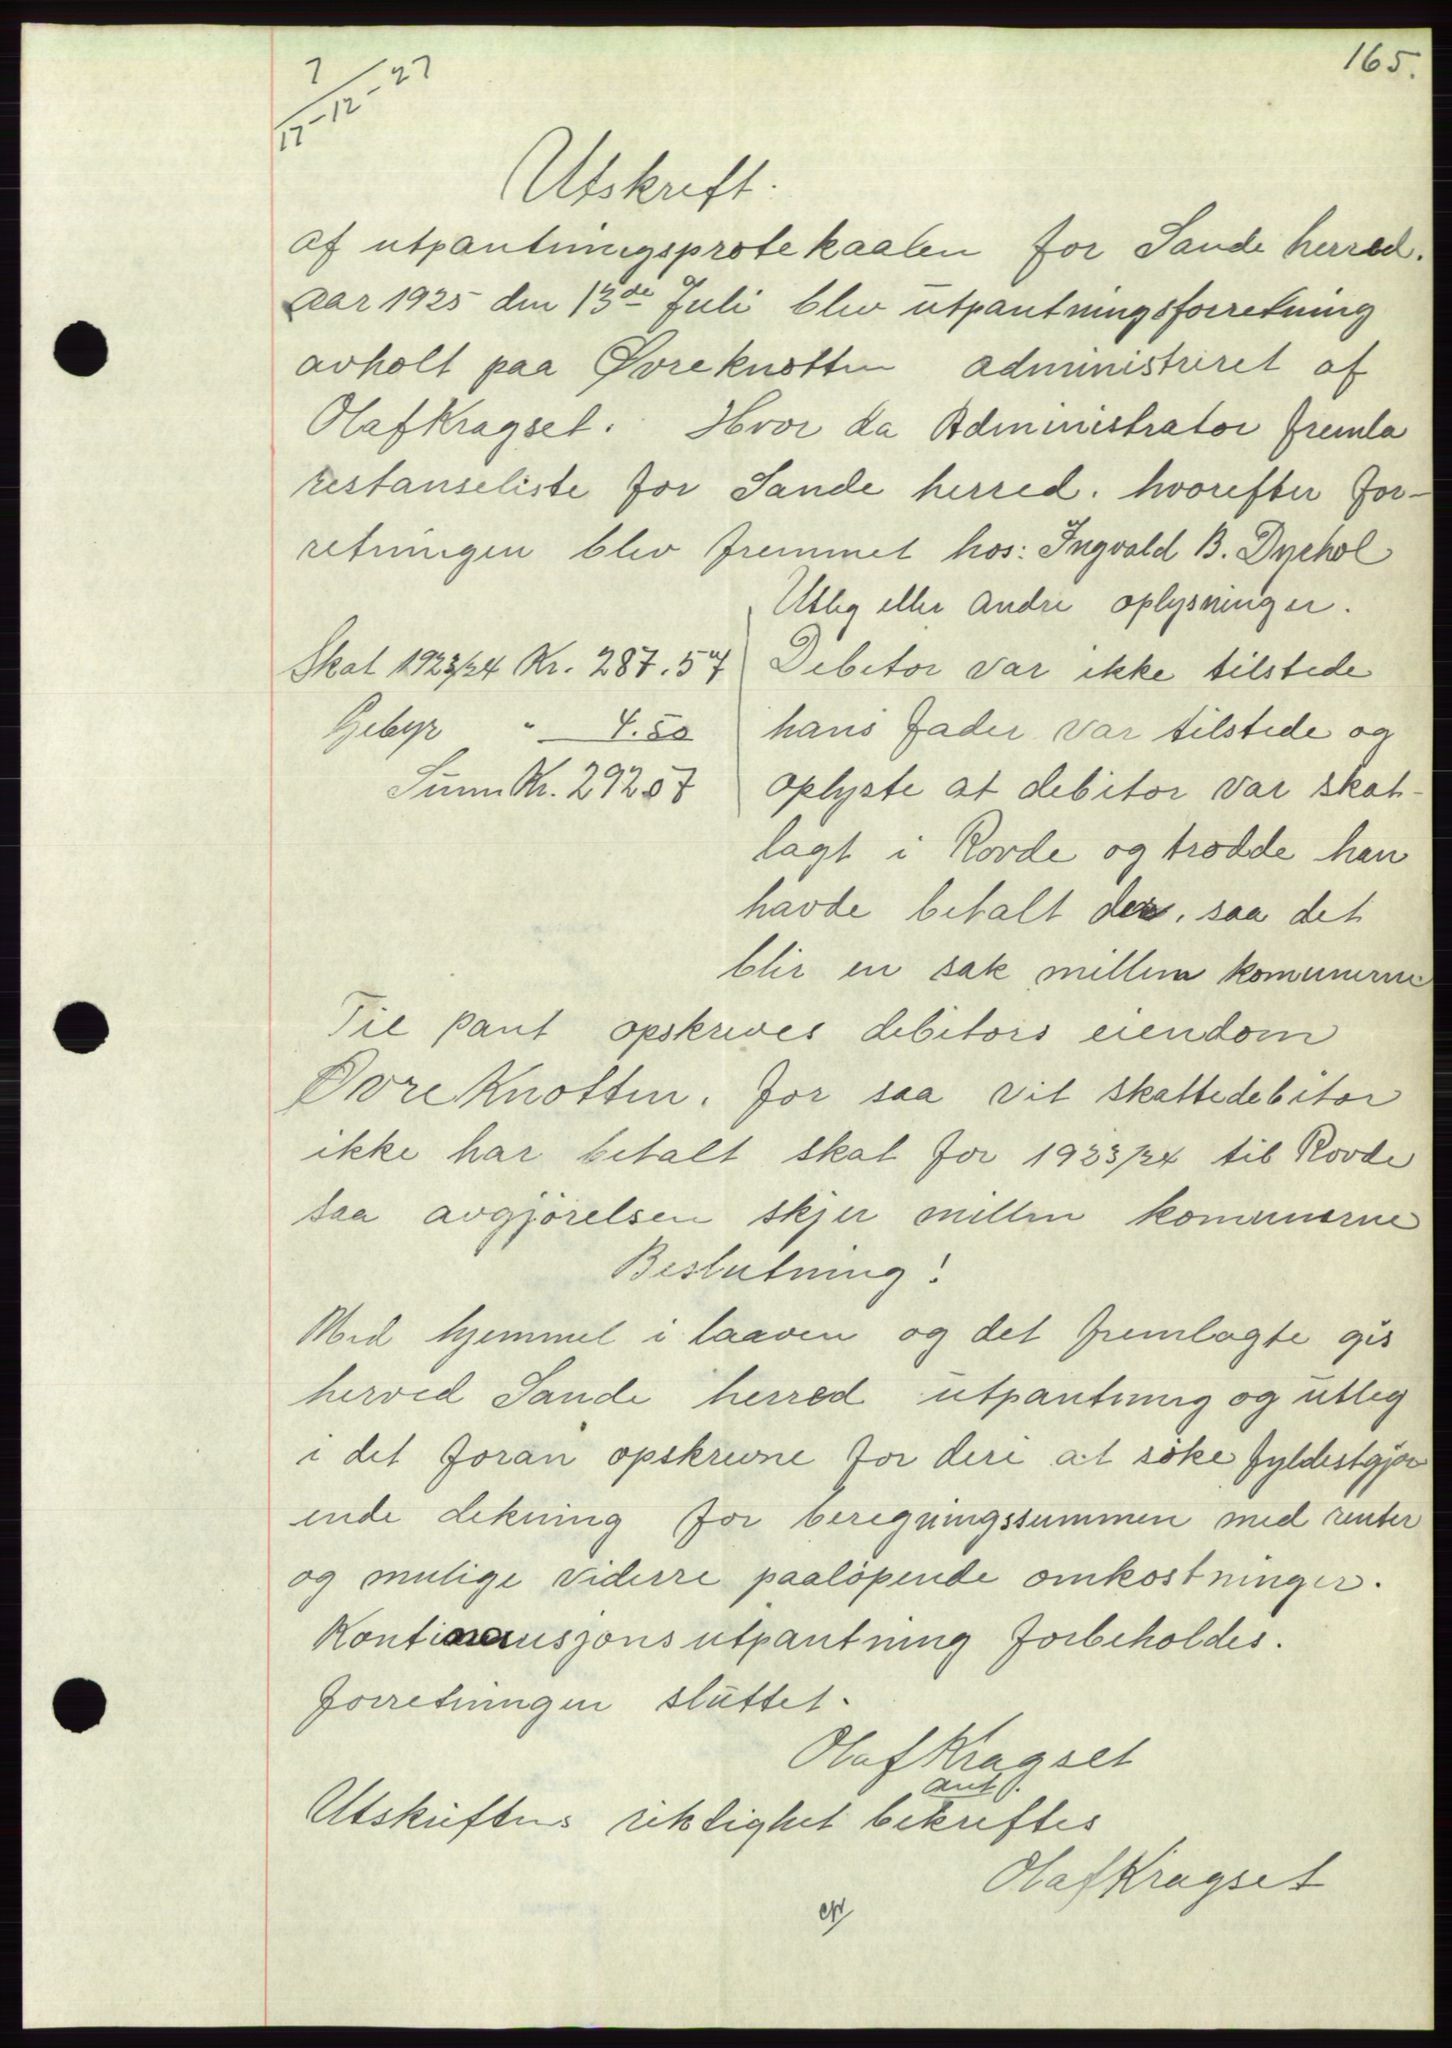 165.
7/17-12-27
Utskrift.
af utpantningsprotekaalen for Sande herred.
aar 1925 den 13de Juli blev utpantningsforretning
avholt paa Øvreknotten administreret af
Olaf Kragset. Hvor da Administrator fremla
restanseliste for Sande herred. hvorefter for-
retningen blev fremmet hos: Ingvald B. Dyrhol
Utleg eller andre oplysninger.
Skat 1923/24 Kr. 287.57 Debitor var ikke tilstede
Gebyr " 4.50 hans fader var tilstede og
Sum Kr. 292.07 oplyste at debitor var skat-
lagt i Rovde og trodde han
havde betalt der, saa det
blir en sak millem komunerne
Til pant opskrives debitors eiendom
Øvre Knotten. for saa vit skattedebitor
ikke har betalt skat for 1923/24 til Rovde
saa avgjørelsen skjer millem komunerne
Beslutning!
Med hjemmel i laaven og det fremlagte gis
herved Sande herred utpantning og utleg
i det foran opskrevne for deri at söke fyldestgjør
ende dekning for beregningssummen med renter
og mulige viderre paalöpende omkostninger.
Kontinausjonsutpantning forbeholdes.
forretningen sluttet.
Olaf Kragset
ant.
Utskriftens riktighet bekreftes
Olaf Kragset